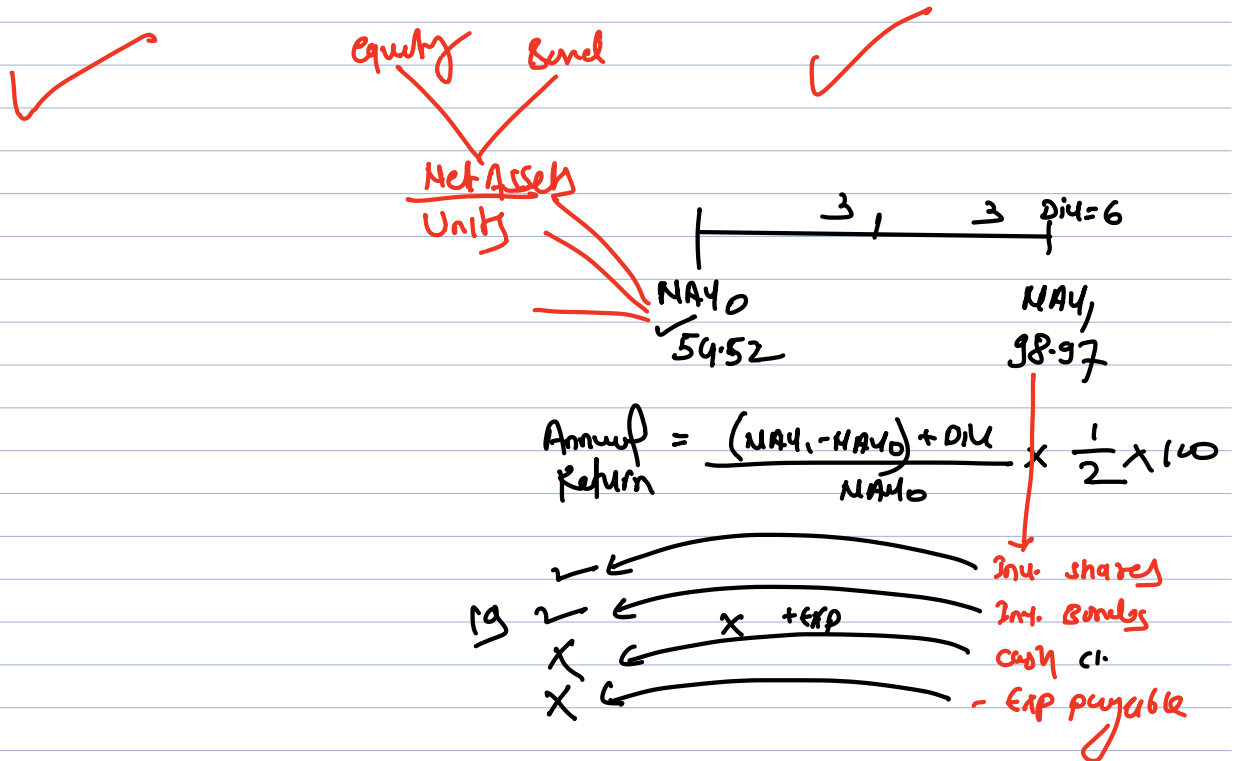 equity Bond
Net Assets
Units
3 3 Div=6
NAV0 NAV1
54.52 98.97
Annual Return = (NAV1-NAV0)+Div / NAV0 × 1/2 × 100
Inv. shares
19 Inv. Bonds
X +Exp
X cash cl.
X - Exp payable